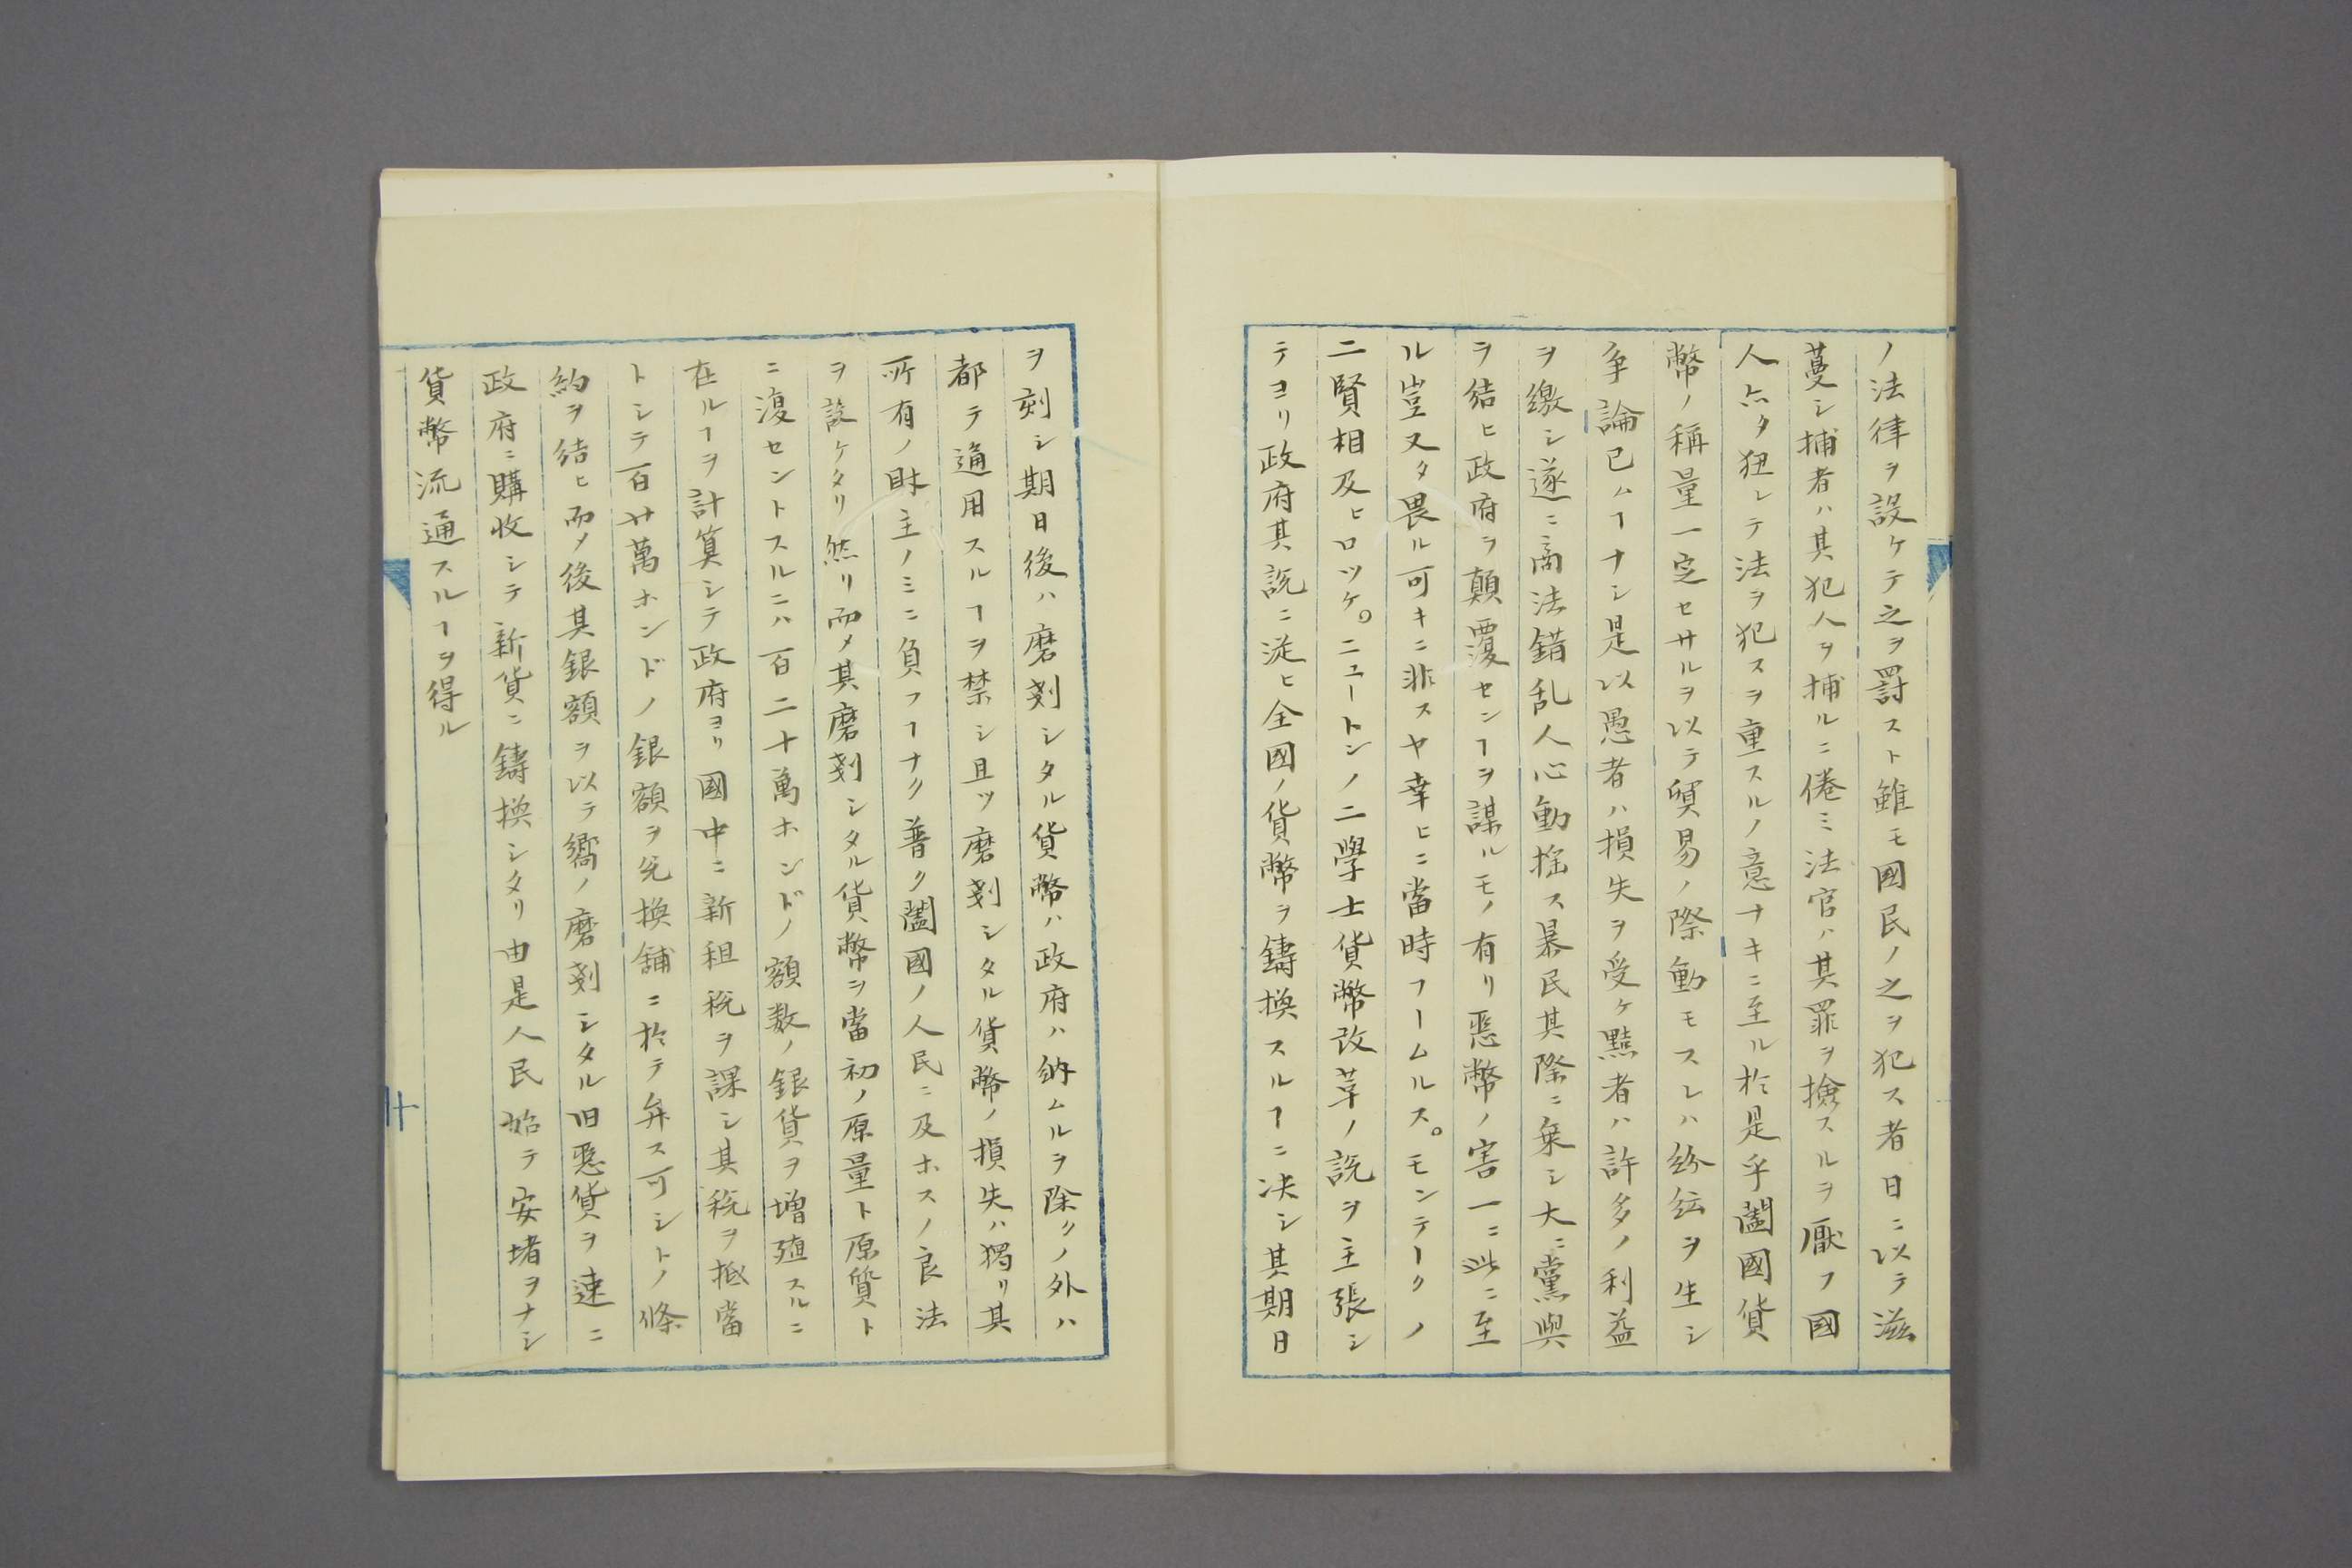 ノ法律ヲ設ケテ之ヲ罸スト雖モ國民ノ之ヲ犯ス者日ニ以テ滋
蔓シ捕者ハ其犯人ヲ捕ルニ倦ミ法官ハ其罪ヲ撿スルヲ厭フ國
人亦タ狃レテ法ヲ犯スヲ重スルノ意ナキニ至ル於是乎闔國貨
幣ノ稱量一定セサルヲ以テ貿易ノ際動モスレハ紛紜ヲ生シ
争論已ムヿナシ是以愚者ハ損失ヲ受ケ黠者ハ許多ノ利益
ヲ繳シ遂ニ商法錯乱人心動揺ス暴民其際ニ乗シ大ニ黨與
ヲ結ヒ政府ヲ顛覆センヿヲ謀ルモノ有リ惡幣ノ害一ニ此ニ至
ル豈又タ畏ル可キニ非スヤ幸ヒニ當時フームルス。モンテークノ
二賢相及ヒロツケ。ニュートンノ二學士貨幣改革ノ説ヲ主張シ
テヨリ政府其説ニ従ヒ全國ノ貨幣ヲ鑄換スルヿニ决シ其期日
ヲ刻シ期日後ハ磨剗シタル貨幣ハ政府ハ納ムルヲ除クノ外ハ
都テ通用スルヿヲ禁シ且ツ磨剗シタル貨幣ノ損失ハ獨リ其
所有ノ財主ノミニ負フヿナク普ク闔國ノ人民ニ及ホスノ良法
ヲ設ケタリ然リ而メ其磨剗シタル貨幣ヲ當初ノ原量ト原質ト
ニ復セントスルニハ百二十萬ホンドノ額数ノ銀貨ヲ増殖スルニ
在ルヿヲ計算シテ政府ヨリ國中ニ新租税ヲ課シ其税ヲ抵當
トシテ百廿萬ホンドノ銀額ヲ兌換舗ニ於テ弁ス可シトノ條
約ヲ結ヒ而メ後其銀額ヲ以テ嚮ノ磨剗シタル旧惡貨ヲ速ニ
政府ニ購收シテ新貨ニ鑄換シタリ由是人民始テ安堵ヲナシ
貨幣流通スルヿヲ得ル
十